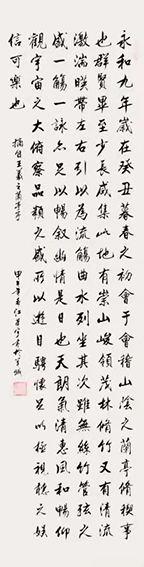 永和九年歲在癸丑暮春之初會于會稽山陰之蘭亭脩禊事
也群賢畢至少長咸集此地有崇山峻嶺茂林脩竹又有清流
激湍暎帶左右引以為流觴曲水列坐其次雖無絲竹管弦之
盛一觴一詠亦足以暢敘幽情是日也天朗氣清惠風和暢仰
觀宇宙之大俯察品類之盛所以遊目騁懷足以極視聽之娛
信可樂也
摘自王羲之蘭亭序